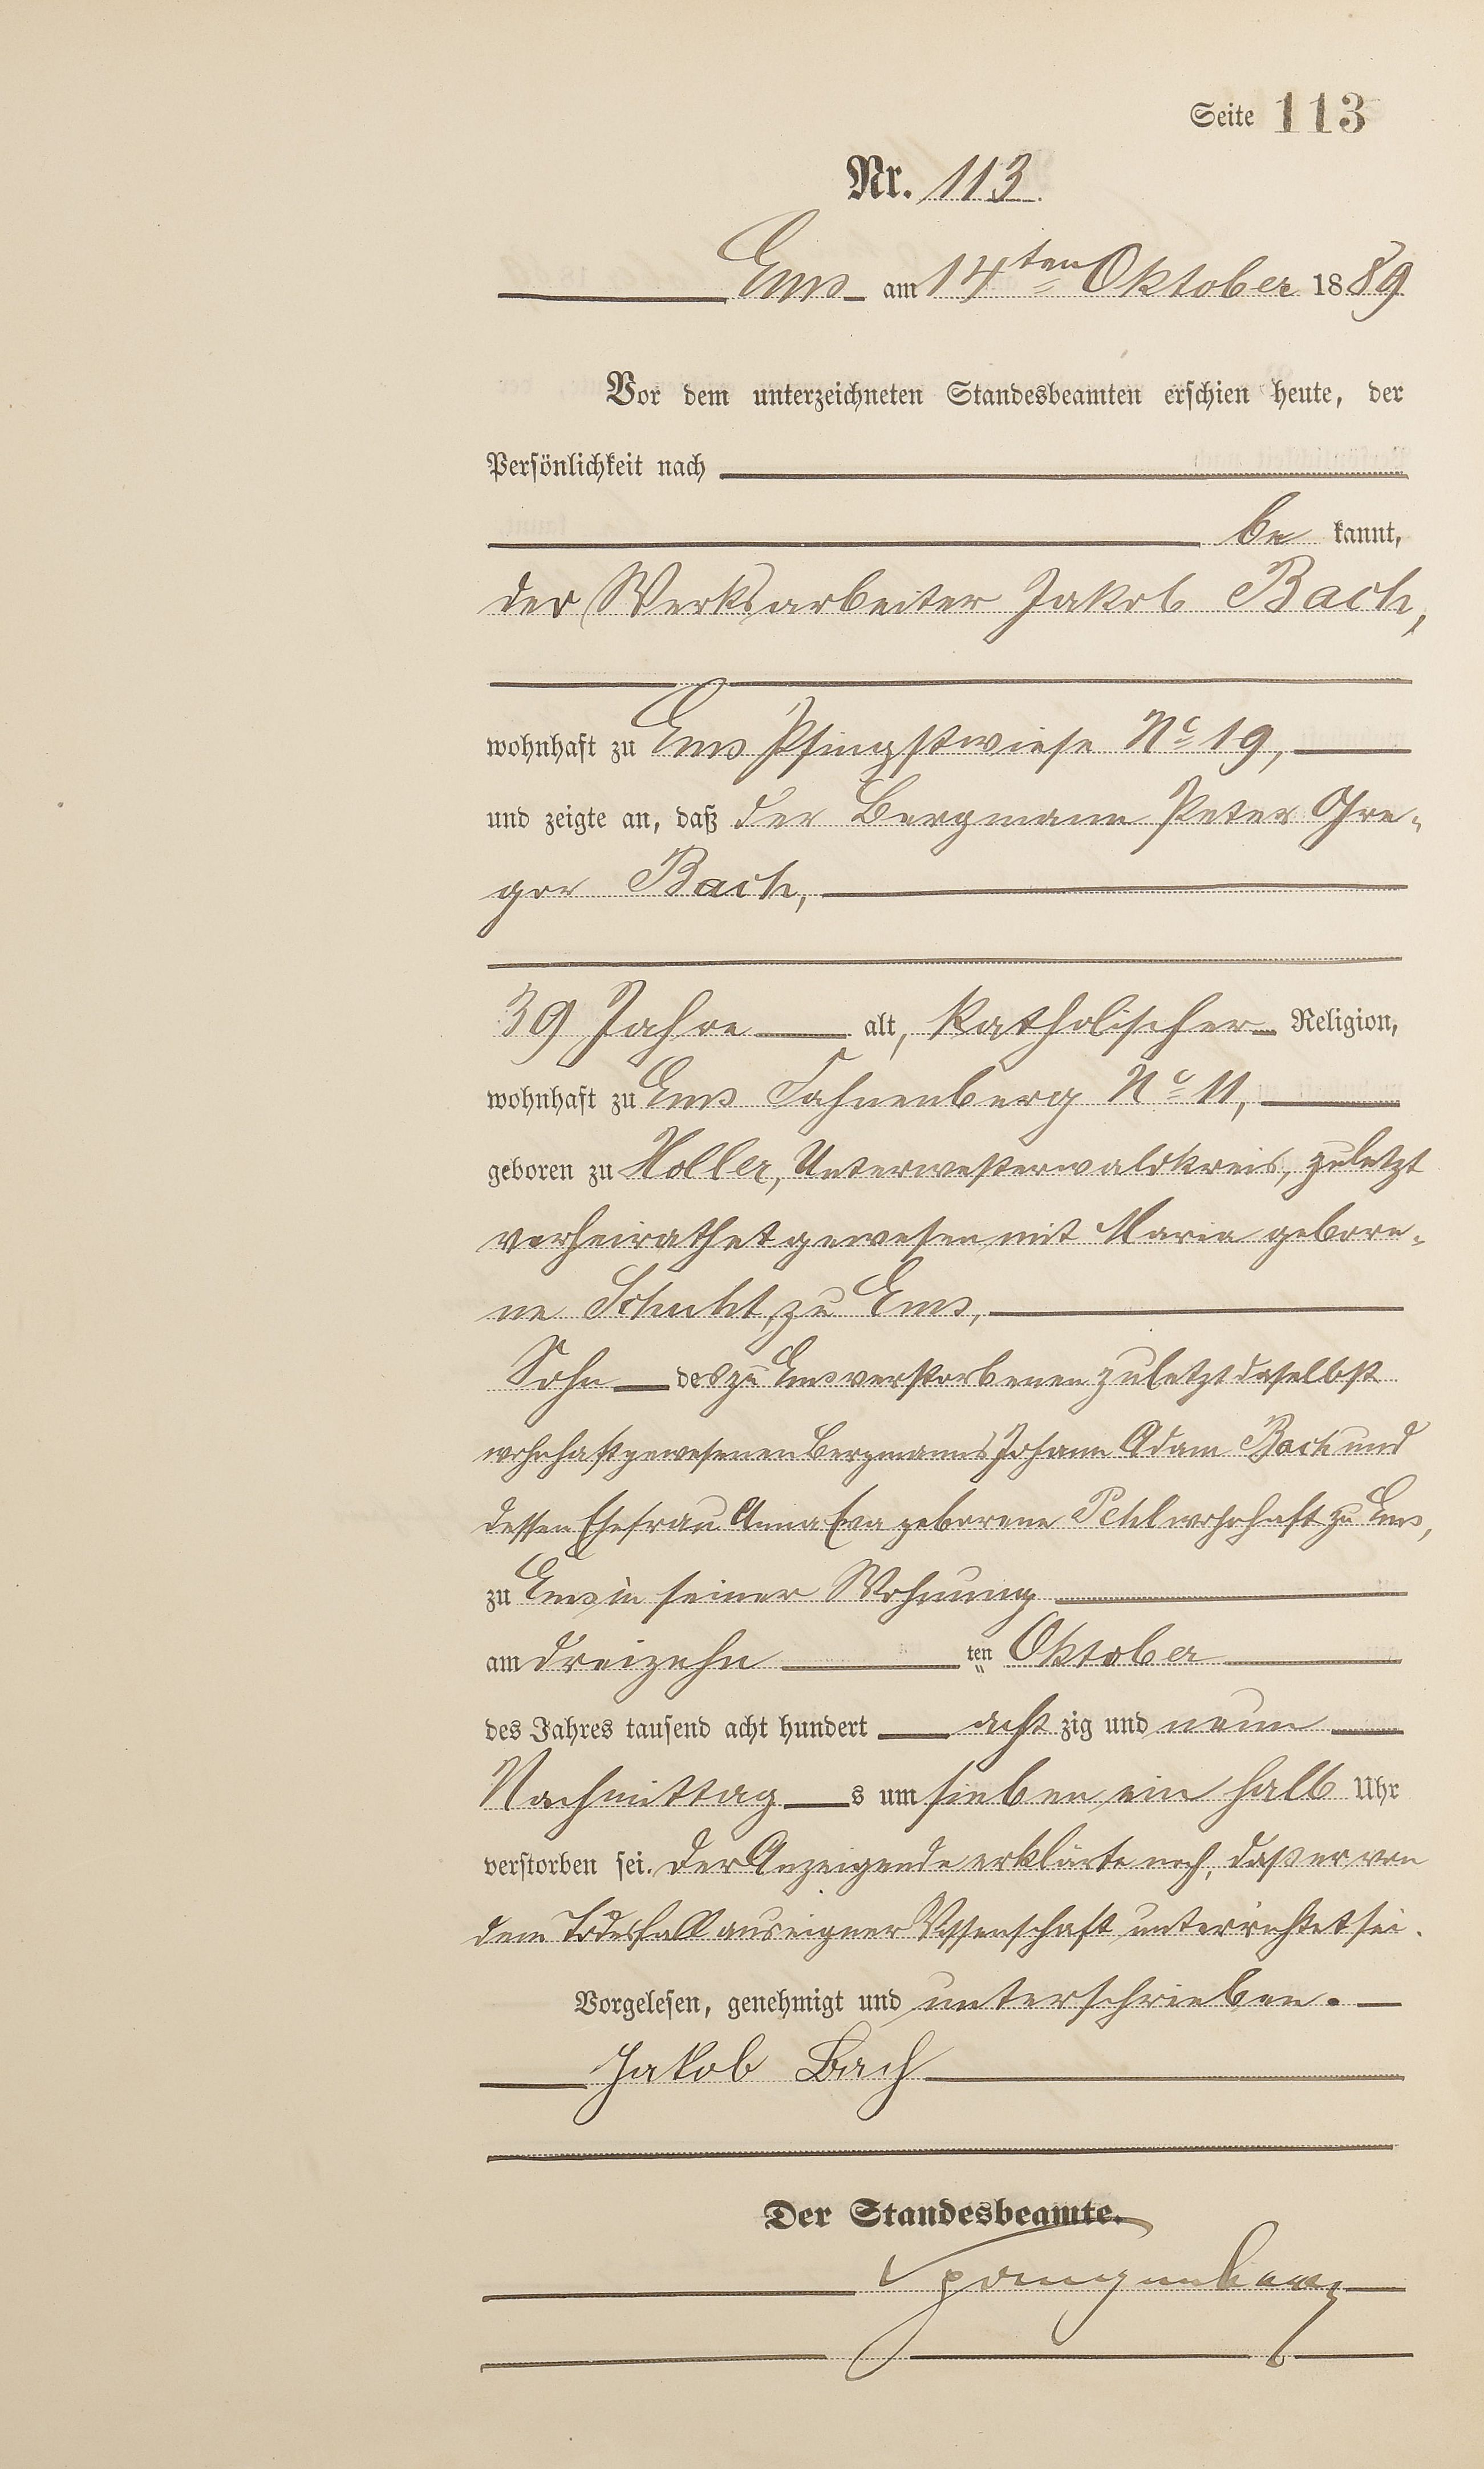 Seite 113
Nr. 113.
Ems am 14ten Oktober 1889
Vor dem unterzeichneten Standesbeamten erschien heute, der
Persönlichkeit nach
be kannt,
der Werksarbeiter Jakob Bach,
wohnhaft zu Ems Pfingstwiese No 19,
und zeigte an, daß der Bergmann Peter Gre-
gor Bach,
39 Jahre alt, katholischer Religion,
wohnhaft zu Ems Fahnenberg No 11,
geboren zu Holler, Unterwesterwaldkreis, zuletzt
verheirathet gewesen mit Maria gebore-
ne zu Ems,
Sohn des zu Ems verstorbenen zuletzt daselbst
wohnhaft gewesenen Bergmanns Johann Adam Bach und
dessen Ehefrau Anna Eva geborene wohnhaft zu Ems,
zu Ems in seiner Wohnung
am dreizehn ten Oktober
des Jahres tausend acht hundert acht zig und neun
Nachmittag s um sieben ein halb Uhr
verstorben sei. Der Anzeigende erklärte noch, daß er von
dem Todesfall aus eigner Wissenschaft unterrichtet sei.
Vorgelesen, genehmigt und unterschrieben.
Jakob Bach
Der Standesbeamte.